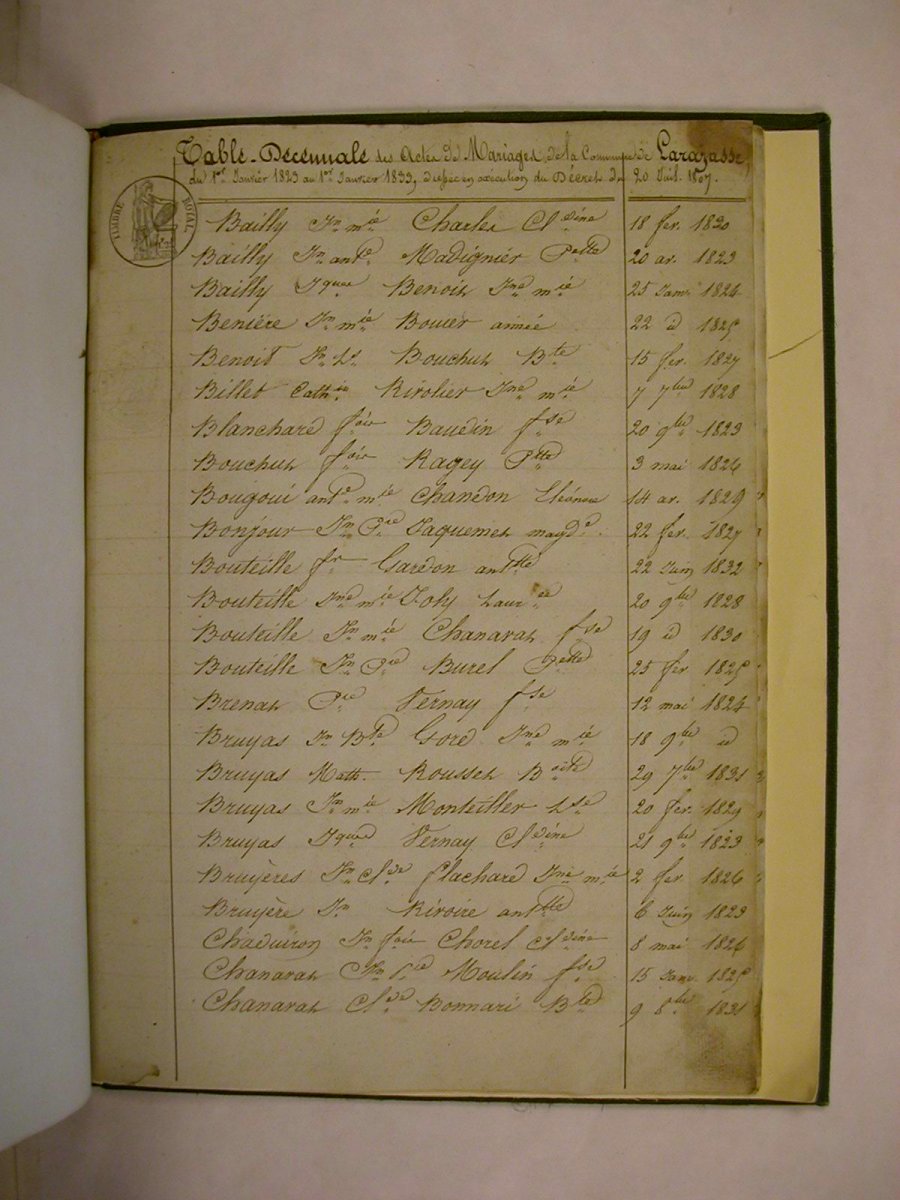 Table-Décennale des Actes de Mariages de la Commune de Larajasse
du 1er Janvier 1823 au 1er Janvier 1833, dressée en exécution du Décret du 20 Juil. 1807.
TIMBRE ROYAL
Bailly Jn mie Charles Cldine 18 fer. 1830
Bailly Jn ante Madignier Pette 20 av. 1823
Bailly Jques Benoit Jne mie 25 Janv 1824
Beniére Jn mie Bouier aimée 22 id 1825
Benoit Jn Ls Bouchut Bte 15 fer. 1827
Billet Cathine Rivolier Jne mie 7 7bre 1828
Blanchard fois Baudin fse 20 9bre 1823
Bouchut fois Ragey Pette 3 mai 1826
ante mie Chandon Eléonore 14 av. 1829
Bonjour Jn Pre Jaquemet magde 22 fer. 1827
Bouteille fr Gardon antte 22 Juin 1832
Bouteille Jne mie Joly Laurce 20 9bre 1828
Bouteille Jn mie Chanavat fse 19 id 1830
Bouteille Jn Pre Burel Pette 25 fer 1825
Brenat Pre Vernay fse 12 mai 1824
Bruyas Jn Bte Gord Jne mie 18 9bre id
Bruyas Math. Rousset 29 7bre 1831
Bruyas Jn mie Monteiller Lse 20 fer. 1829
Bruyas Jques Vernay Cldine 21 9bre 1823
Bruyères Jn Clde flachard Jne mie 2 fer 1826
Bruyère Jn Rivoire antte 6 Juin 1823
Chaduiron Jn fois Chorel Cldine 8 mai 1826
Chanavat Jn Pre Moulin fse 15 Janv. 1825
Chanavat Clde Bonnari Bte 9 8bre 1831